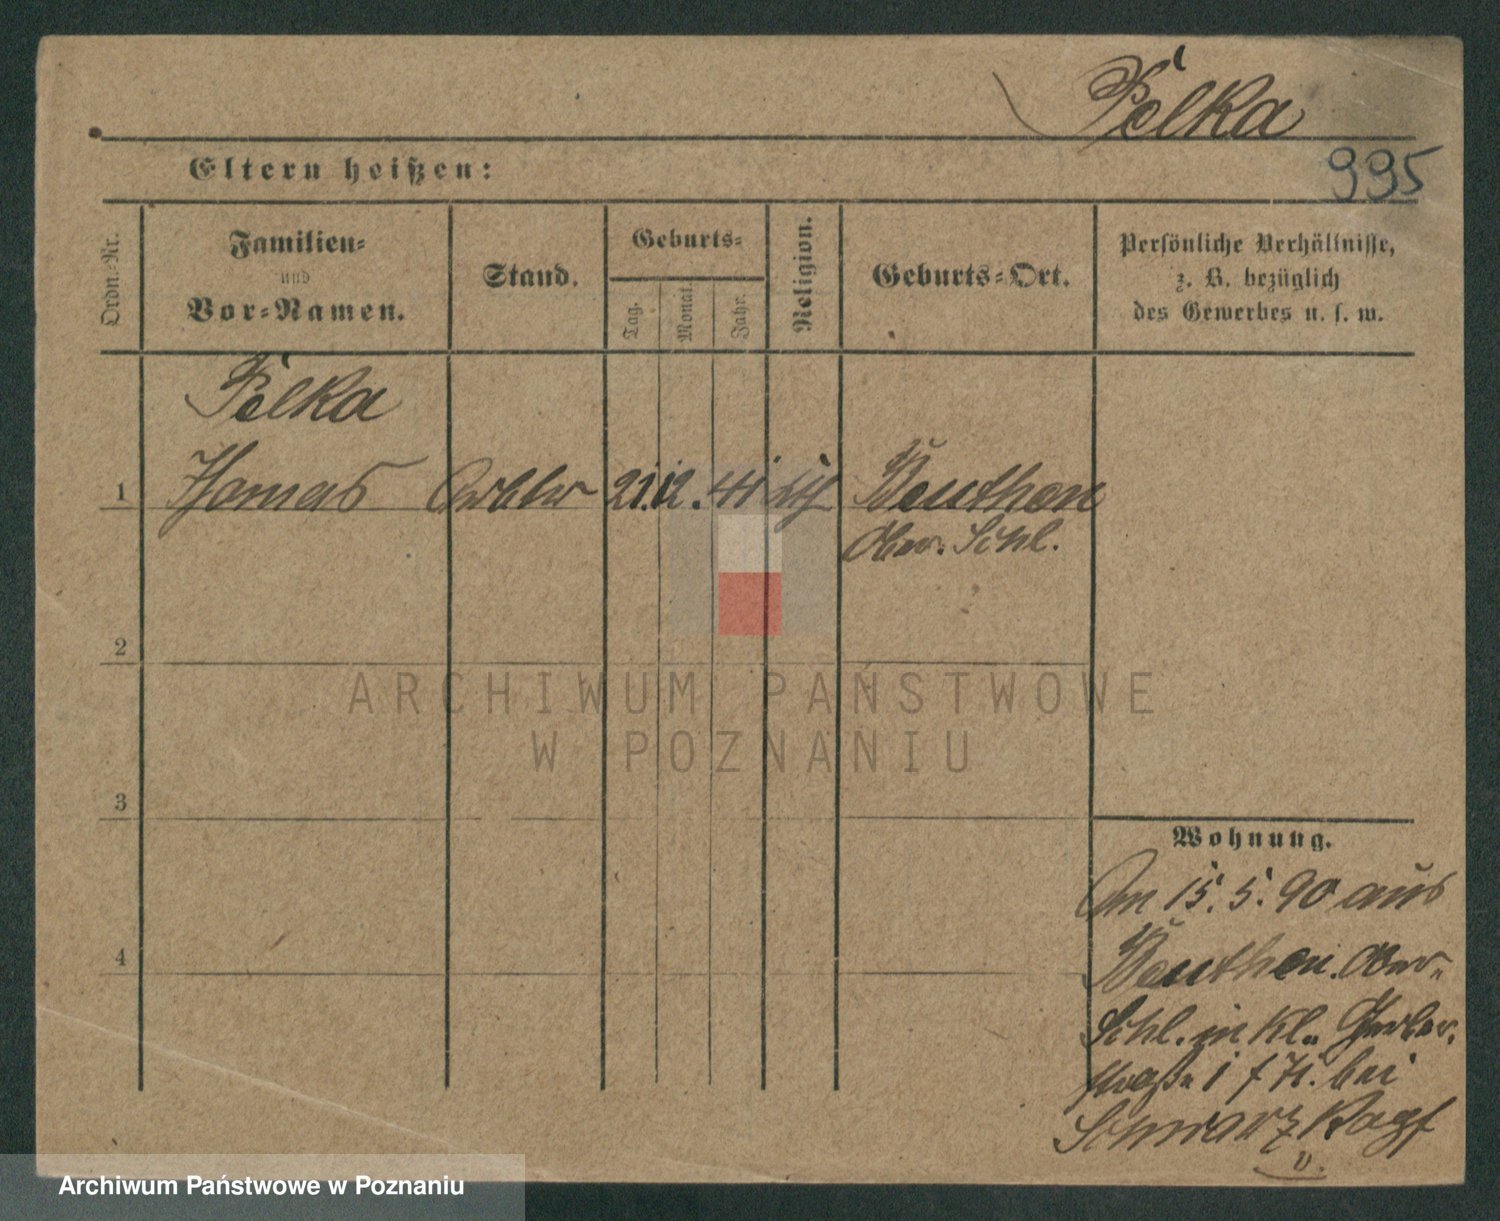 Pelka
995
Eltern heißen:
Ordn.-Nr.
Familien-
und
Vor-Namen.
Stand.
Geburts-
Tag.
Monat.
Jahr.
Religion.
Geburts-Ort.
Persönliche Verhältnisse,
z. B. bezüglich
des Gewerbes u. s. w.
Pelka
1 Thomas 21. 12. 41 Beuthen
Ober. Schl.
2
3
4
ARCHIWUM PAŃSTWOWE
W POZNANIU
Wohnung.
Am 15. 5. 90 aus
Beuthen. Ober-
Schl. in Kl. Gerber-
straße bei
Schwarzkopf
Archiwum Państwowe w Poznaniu